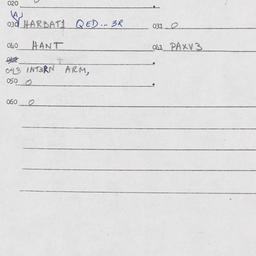 020
030 HARBAT1 QED... 3R 031 0
040 HANT 041 PAXV3
043 INTERN ARM,
050 0
060 0